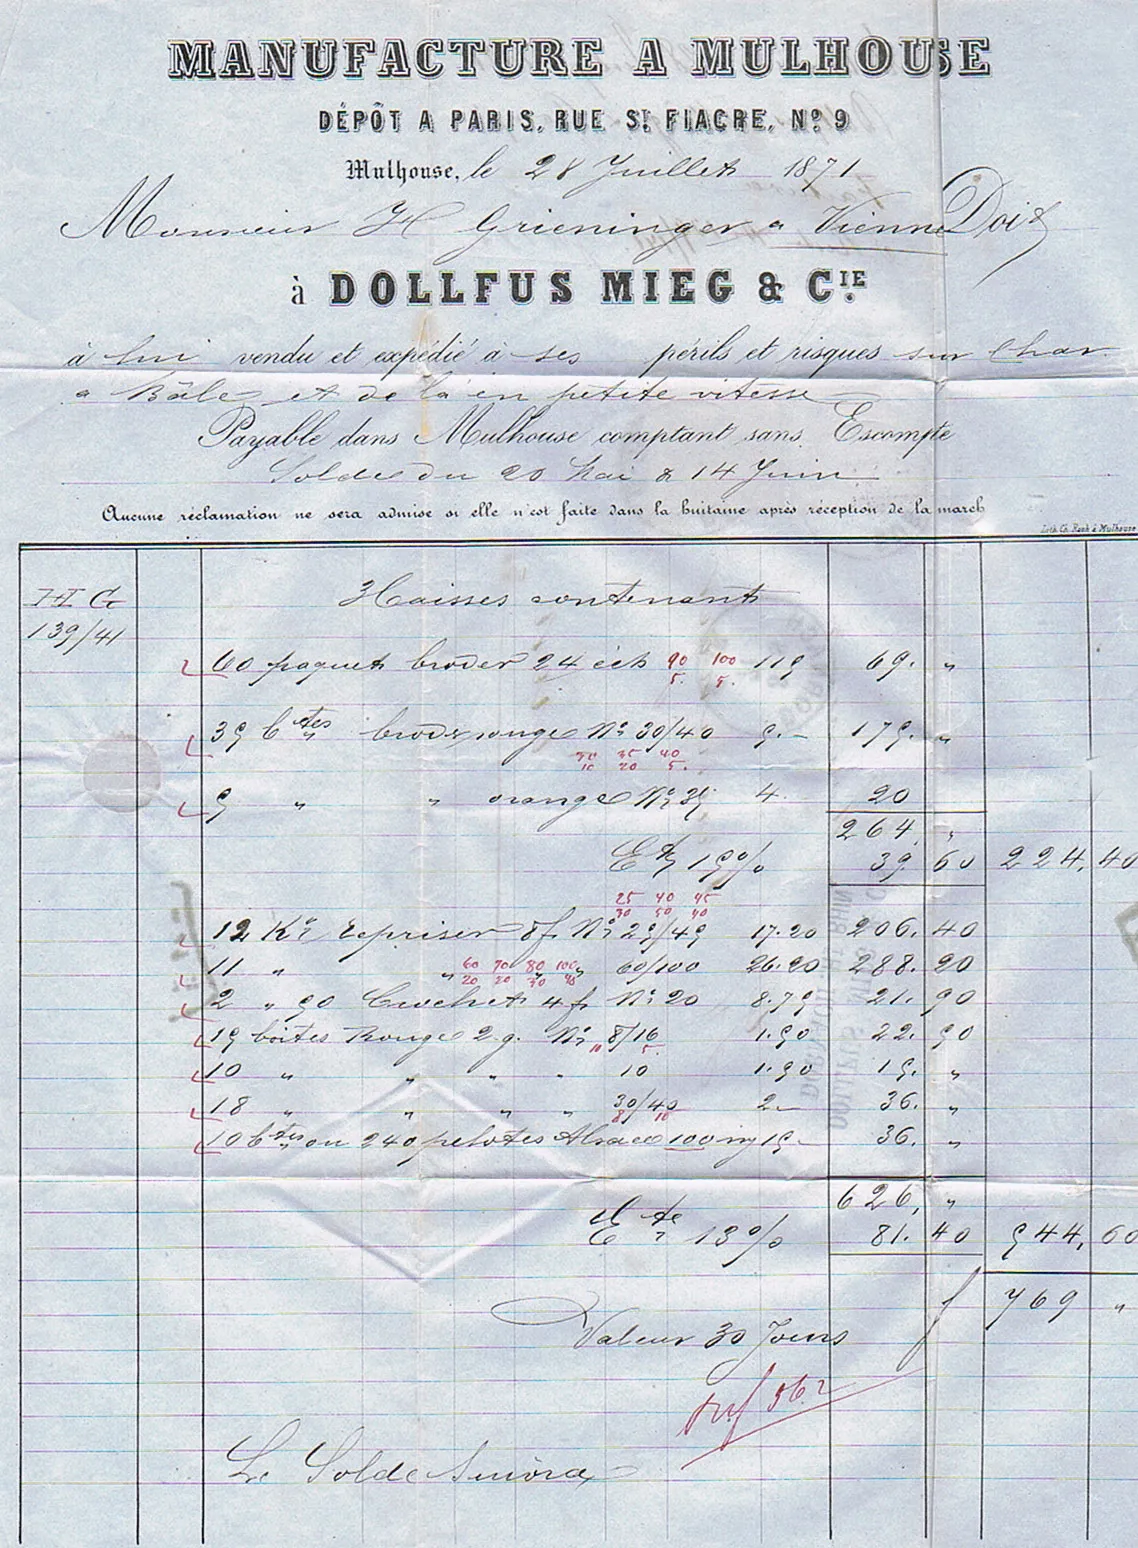 MANUFACTURE A MULHOUSE
DÉPÔT A PARIS, RUE ST. FIACRE, No. 9
Mulhouse, le 28 Juillet 1871
Monsieur H Grieninger a Vienne Doit
à DOLLFUS MIEG & CIE.
à lui vendu et expédié à ses périls et risques sur char
a Bâle et de là en petite vitesse
Payable dans Mulhouse comptant sans Escompte
Solde du 20 Mai & 14 Juin
Aucune réclamation ne sera admise si elle n'est faite dans la huitaine après réception de la march
Lith. Ch. Rack à Mulhouse
HG 3 Caisses contenant
139/41
60 paquets broder 24 éch 90/5. 100/5. 115 69. "
35 btes " broder rouge No 30/40 5.- 175. "
30/10 35/20 40/5.
5 " " orange No 35 4. 20
264, "
Ete 15% 39. 60 224, 40
25/30 40/50 45/40
12 Ko repriser 8f No 25/45 17.20 206. 40
11 " " 60/20 70/20 80/30 100 " 60/100 26.20 288. 20
2 " 50 Crochet 4 f No 20 8.75 21. 90
15 boîtes Rouge 2 g. No 8/16 1.50 22. 50
10 5.
10 " " " " 10 1.50 15. "
18 " " " " 30/40 2.- 36. "
8 10
10 btes " ou 240 pelotes Alsace 100 15- 36. "
626, "
Ete 13% 81. 40 544, 60
f 769 "
Valeur 30 Jours
562
Le Solde suivra